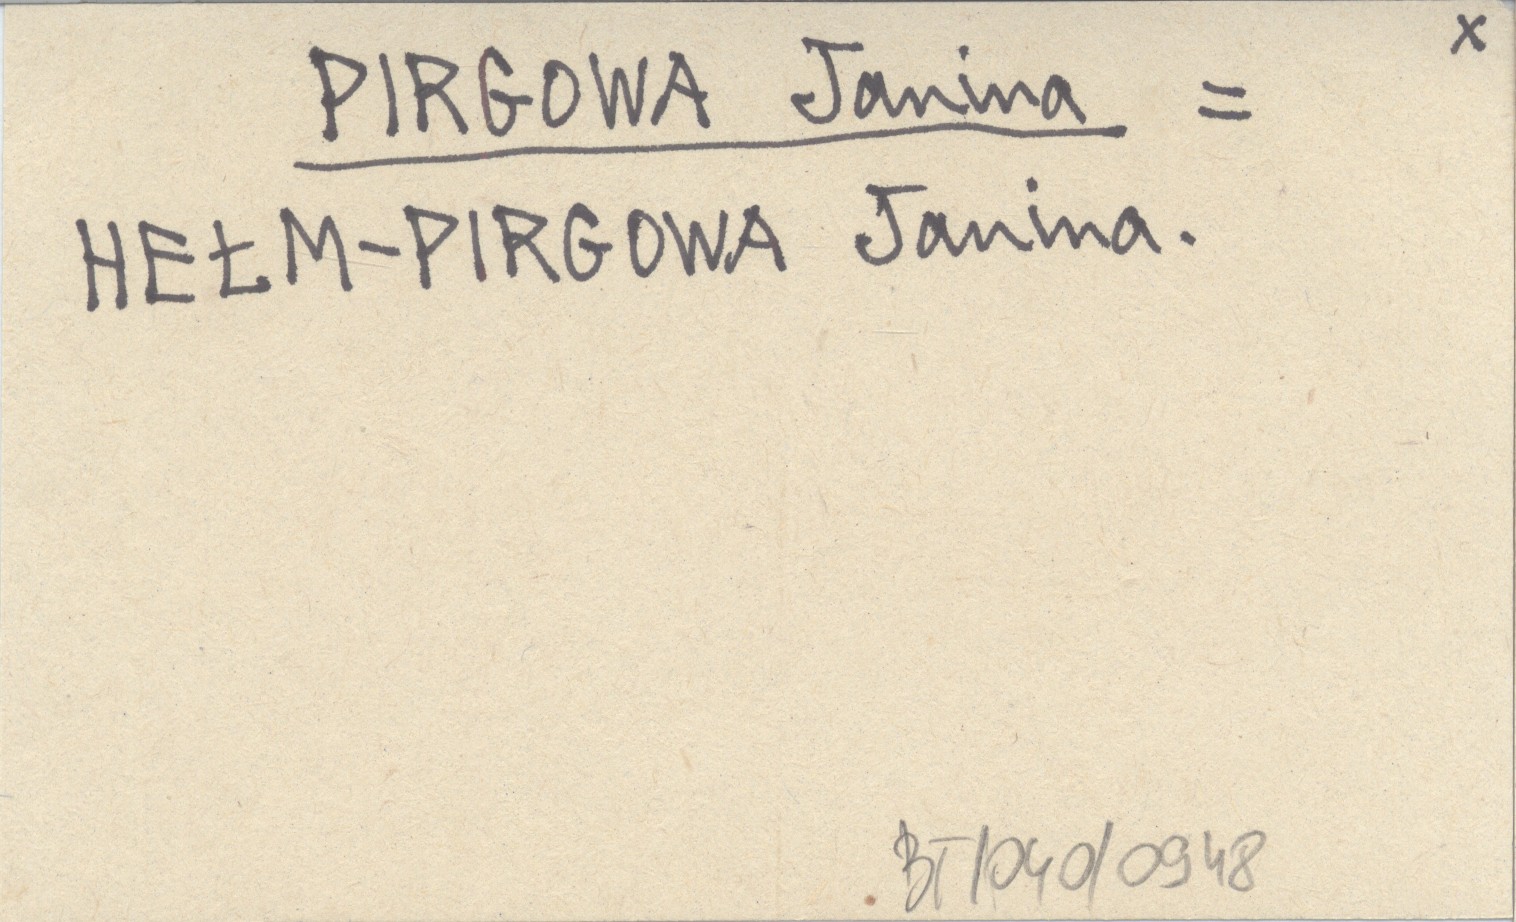 x
PIRGOWA Janina =
HEŁM-PIRGOWA Janina.
BT/040/0948